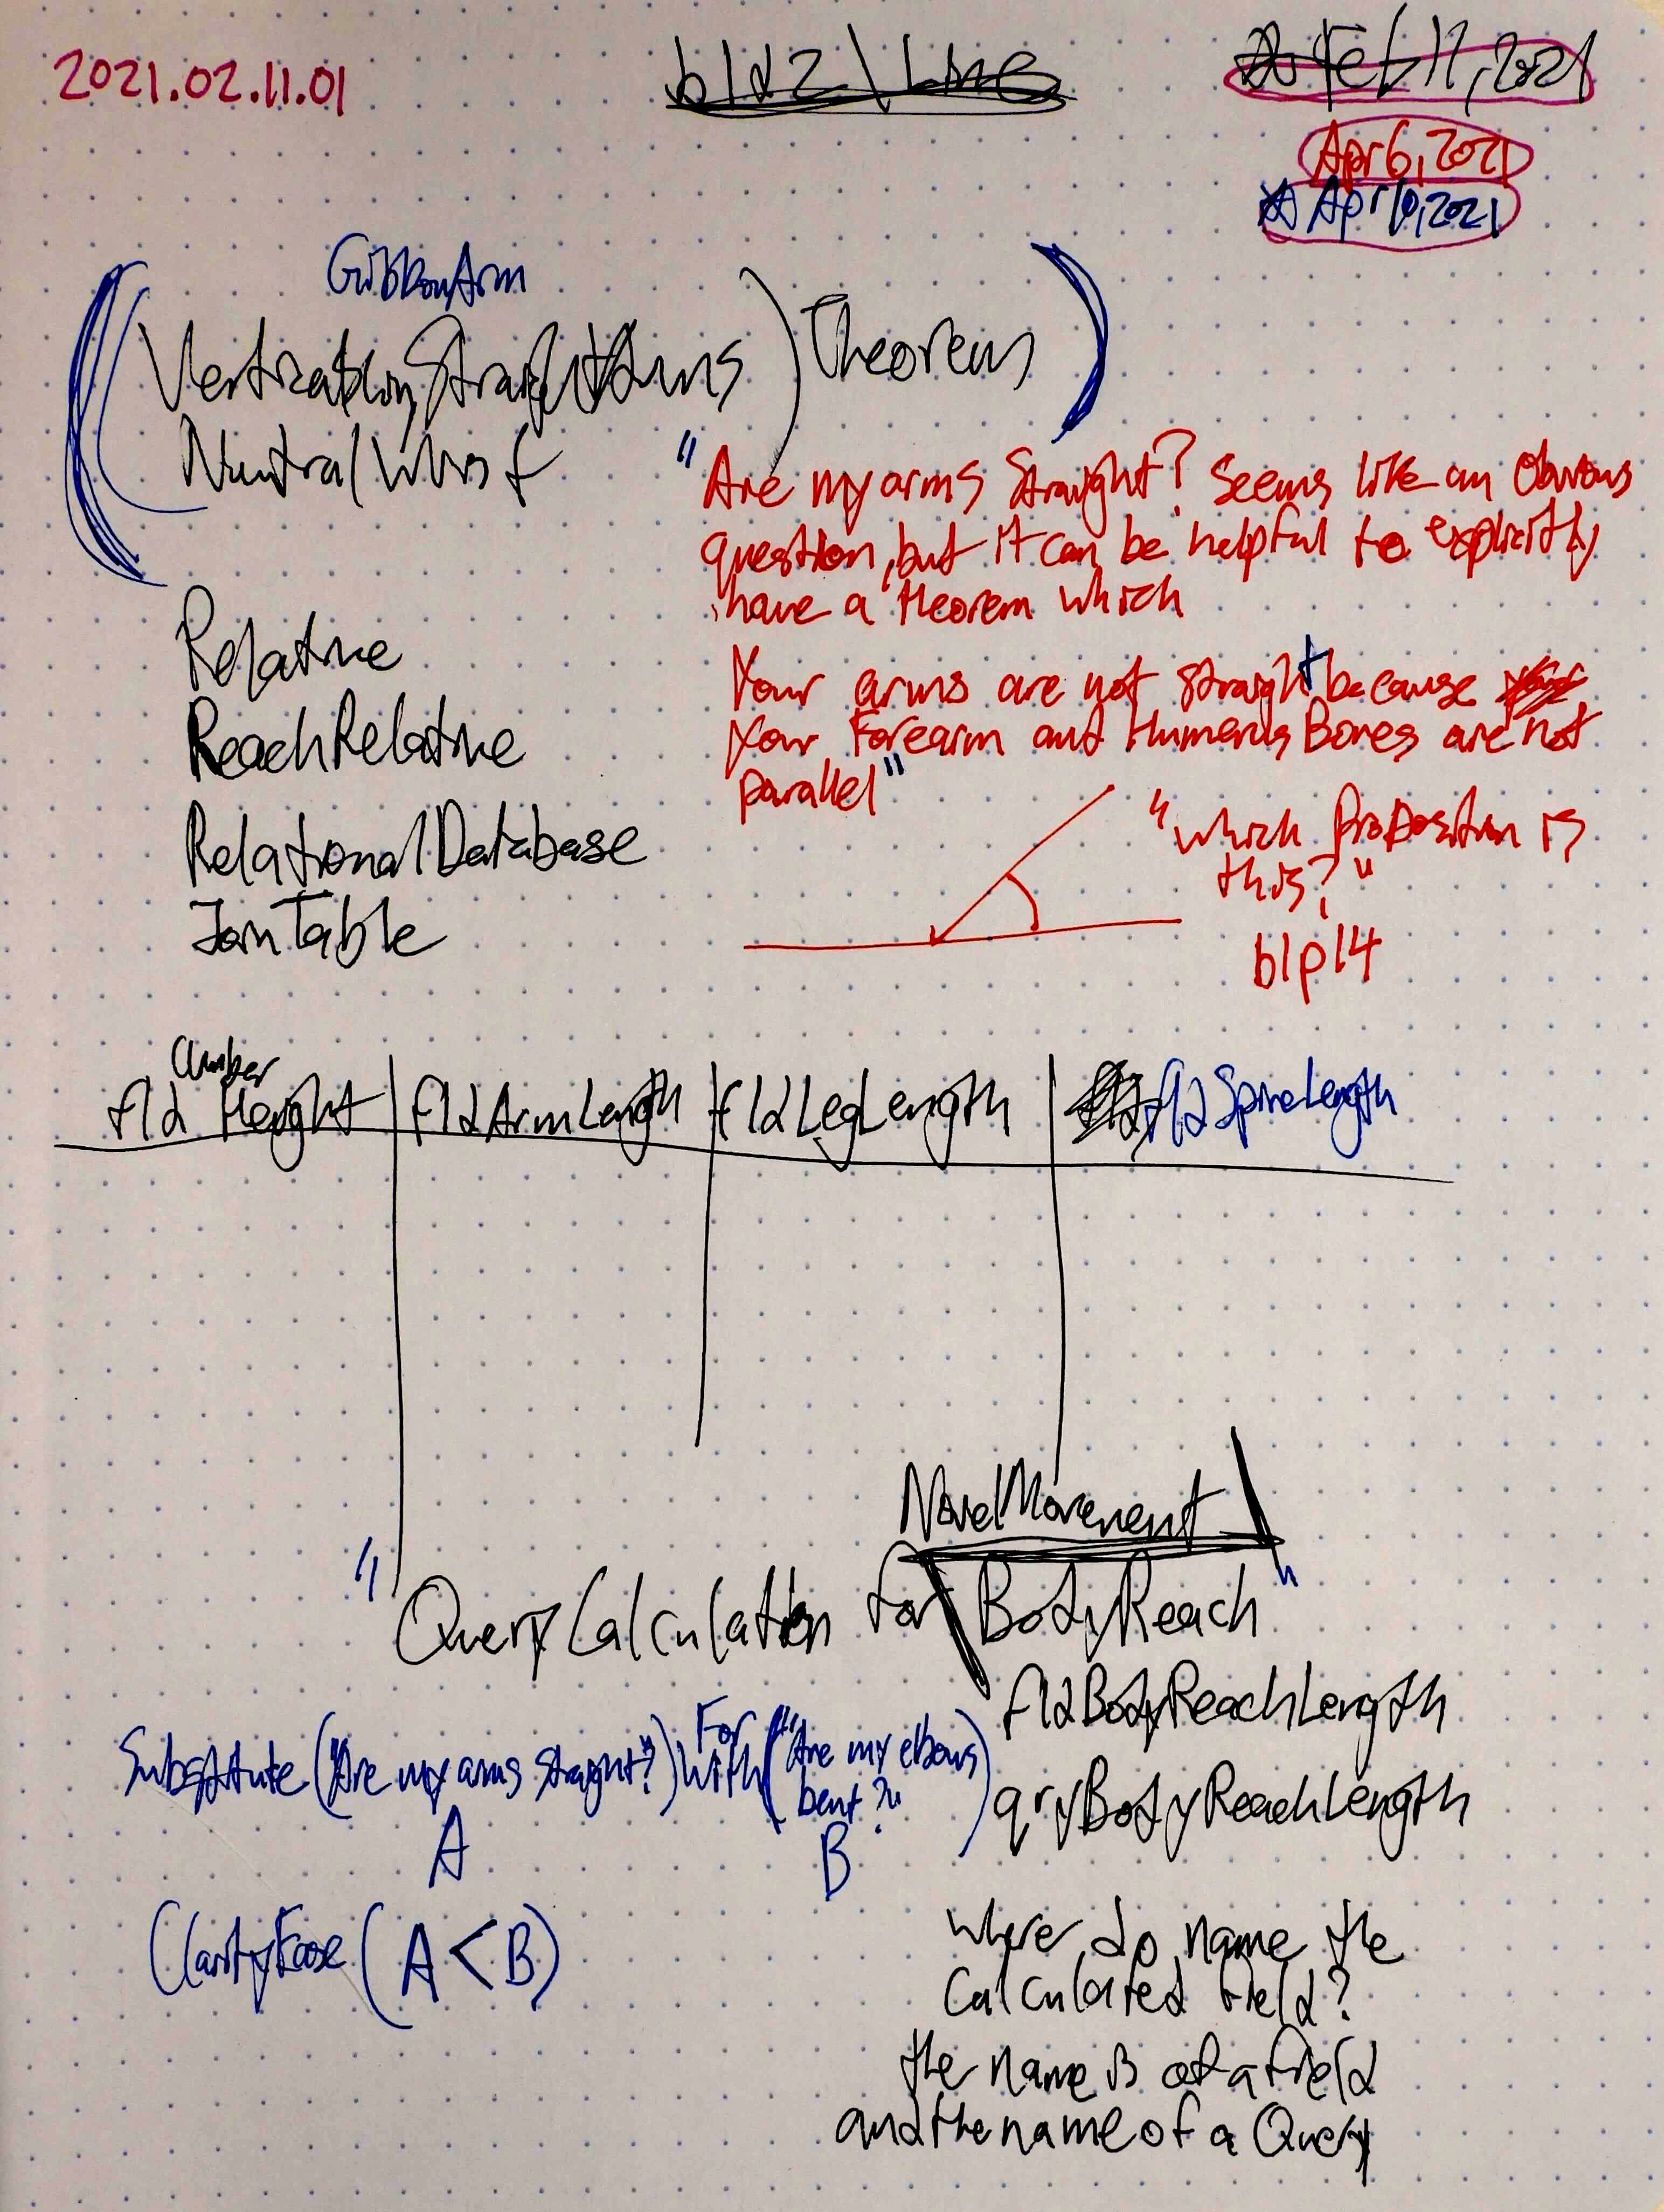 2021.02.11.01
b1d2\Line
Feb 11, 2021
Apr 6, 2021
Apr 10, 2021
GibbonArm
Verticality, StraightArms) Theorem)
Neutral Wrist
"Are my arms Straight? Seems like an Obvious
question, but it can be helpful to explicitly
have a theorem which
Your arms are not straight because
Your Forearm and Humerus Bones are not
parallel"
Relative
ReachRelative
RelationalDatabase
JoinTable
"which Proposition is
this?"
b1p14
Climber
fld Height | fldArmLength | fldLegLength | fldSpineLength
NovelMovement
"Query Calculation for BodyReach"
fldBodyReachLength
qryBodyReachLength
For
Substitute ("Are my arms straight?") with ("Are my elbows
bent?")
A B
ClarityEase (A < B)
where do name the
Calculated field?
the name is of a field
and the name of a Query